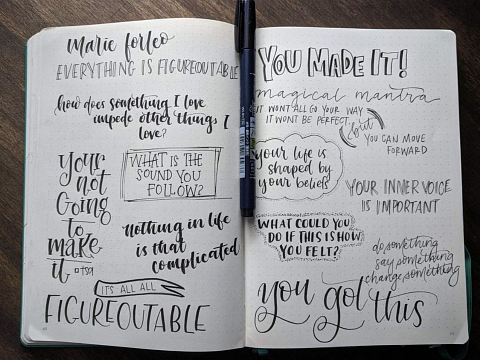 marie forleo
EVERYTHING IS FIGUREOUTABLE
how does something I love
impede other things I
love?
You're
not
Going
to
make
it
WHAT IS THE
SOUND YOU
FOLLOW?
nothing in life
is that
complicated
IT'S ALL ALL
FIGUREOUTABLE
YOU MADE IT!
magical mantra
IT WON'T ALL GO YOUR WAY
IT WON'T BE PERFECT
but
YOU CAN MOVE
FORWARD
your life is
shaped by
your beliefs
YOUR INNER VOICE
IS IMPORTANT
WHAT COULD YOU
DO IF THIS IS HOW
YOU FELT?
do something
say something
change something
you got this